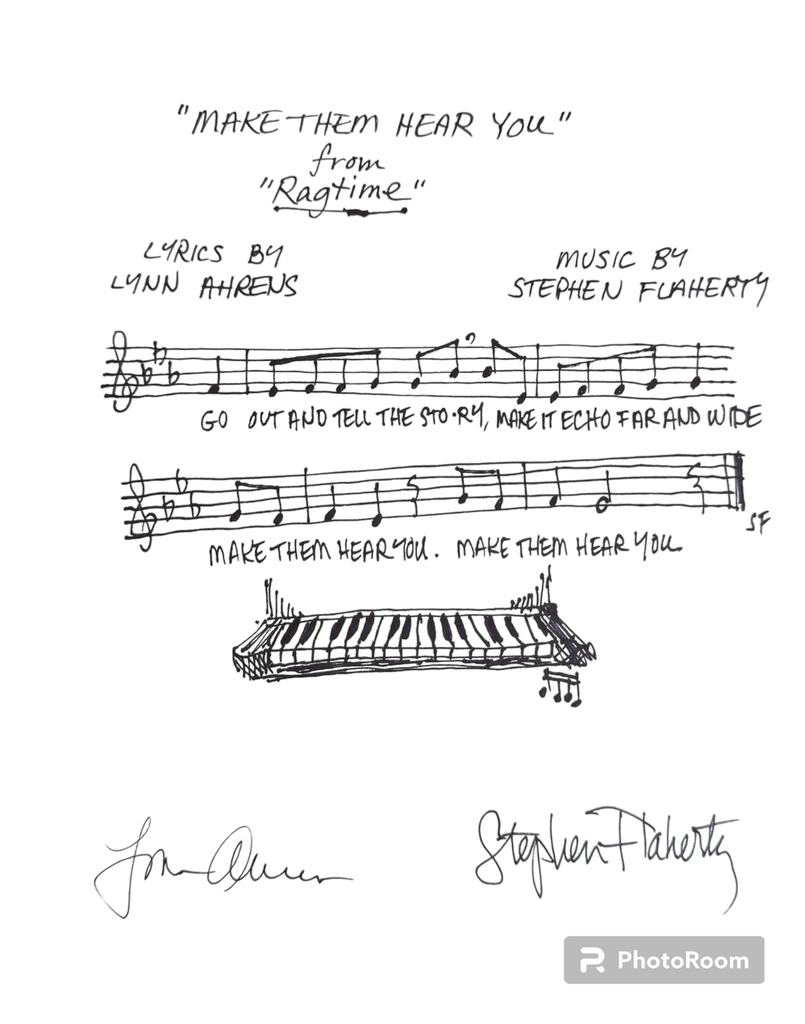 "MAKE THEM HEAR YOU"
from
"Ragtime"
LYRICS BY
LYNN AHRENS
MUSIC BY
STEPHEN FLAHERTY
GO OUT AND TELL THE STO·RY, MAKE IT ECHO FAR AND WIDE
SF
MAKE THEM HEAR YOU. MAKE THEM HEAR YOU.
Lynn Ahrens
Stephen Flaherty
PhotoRoom